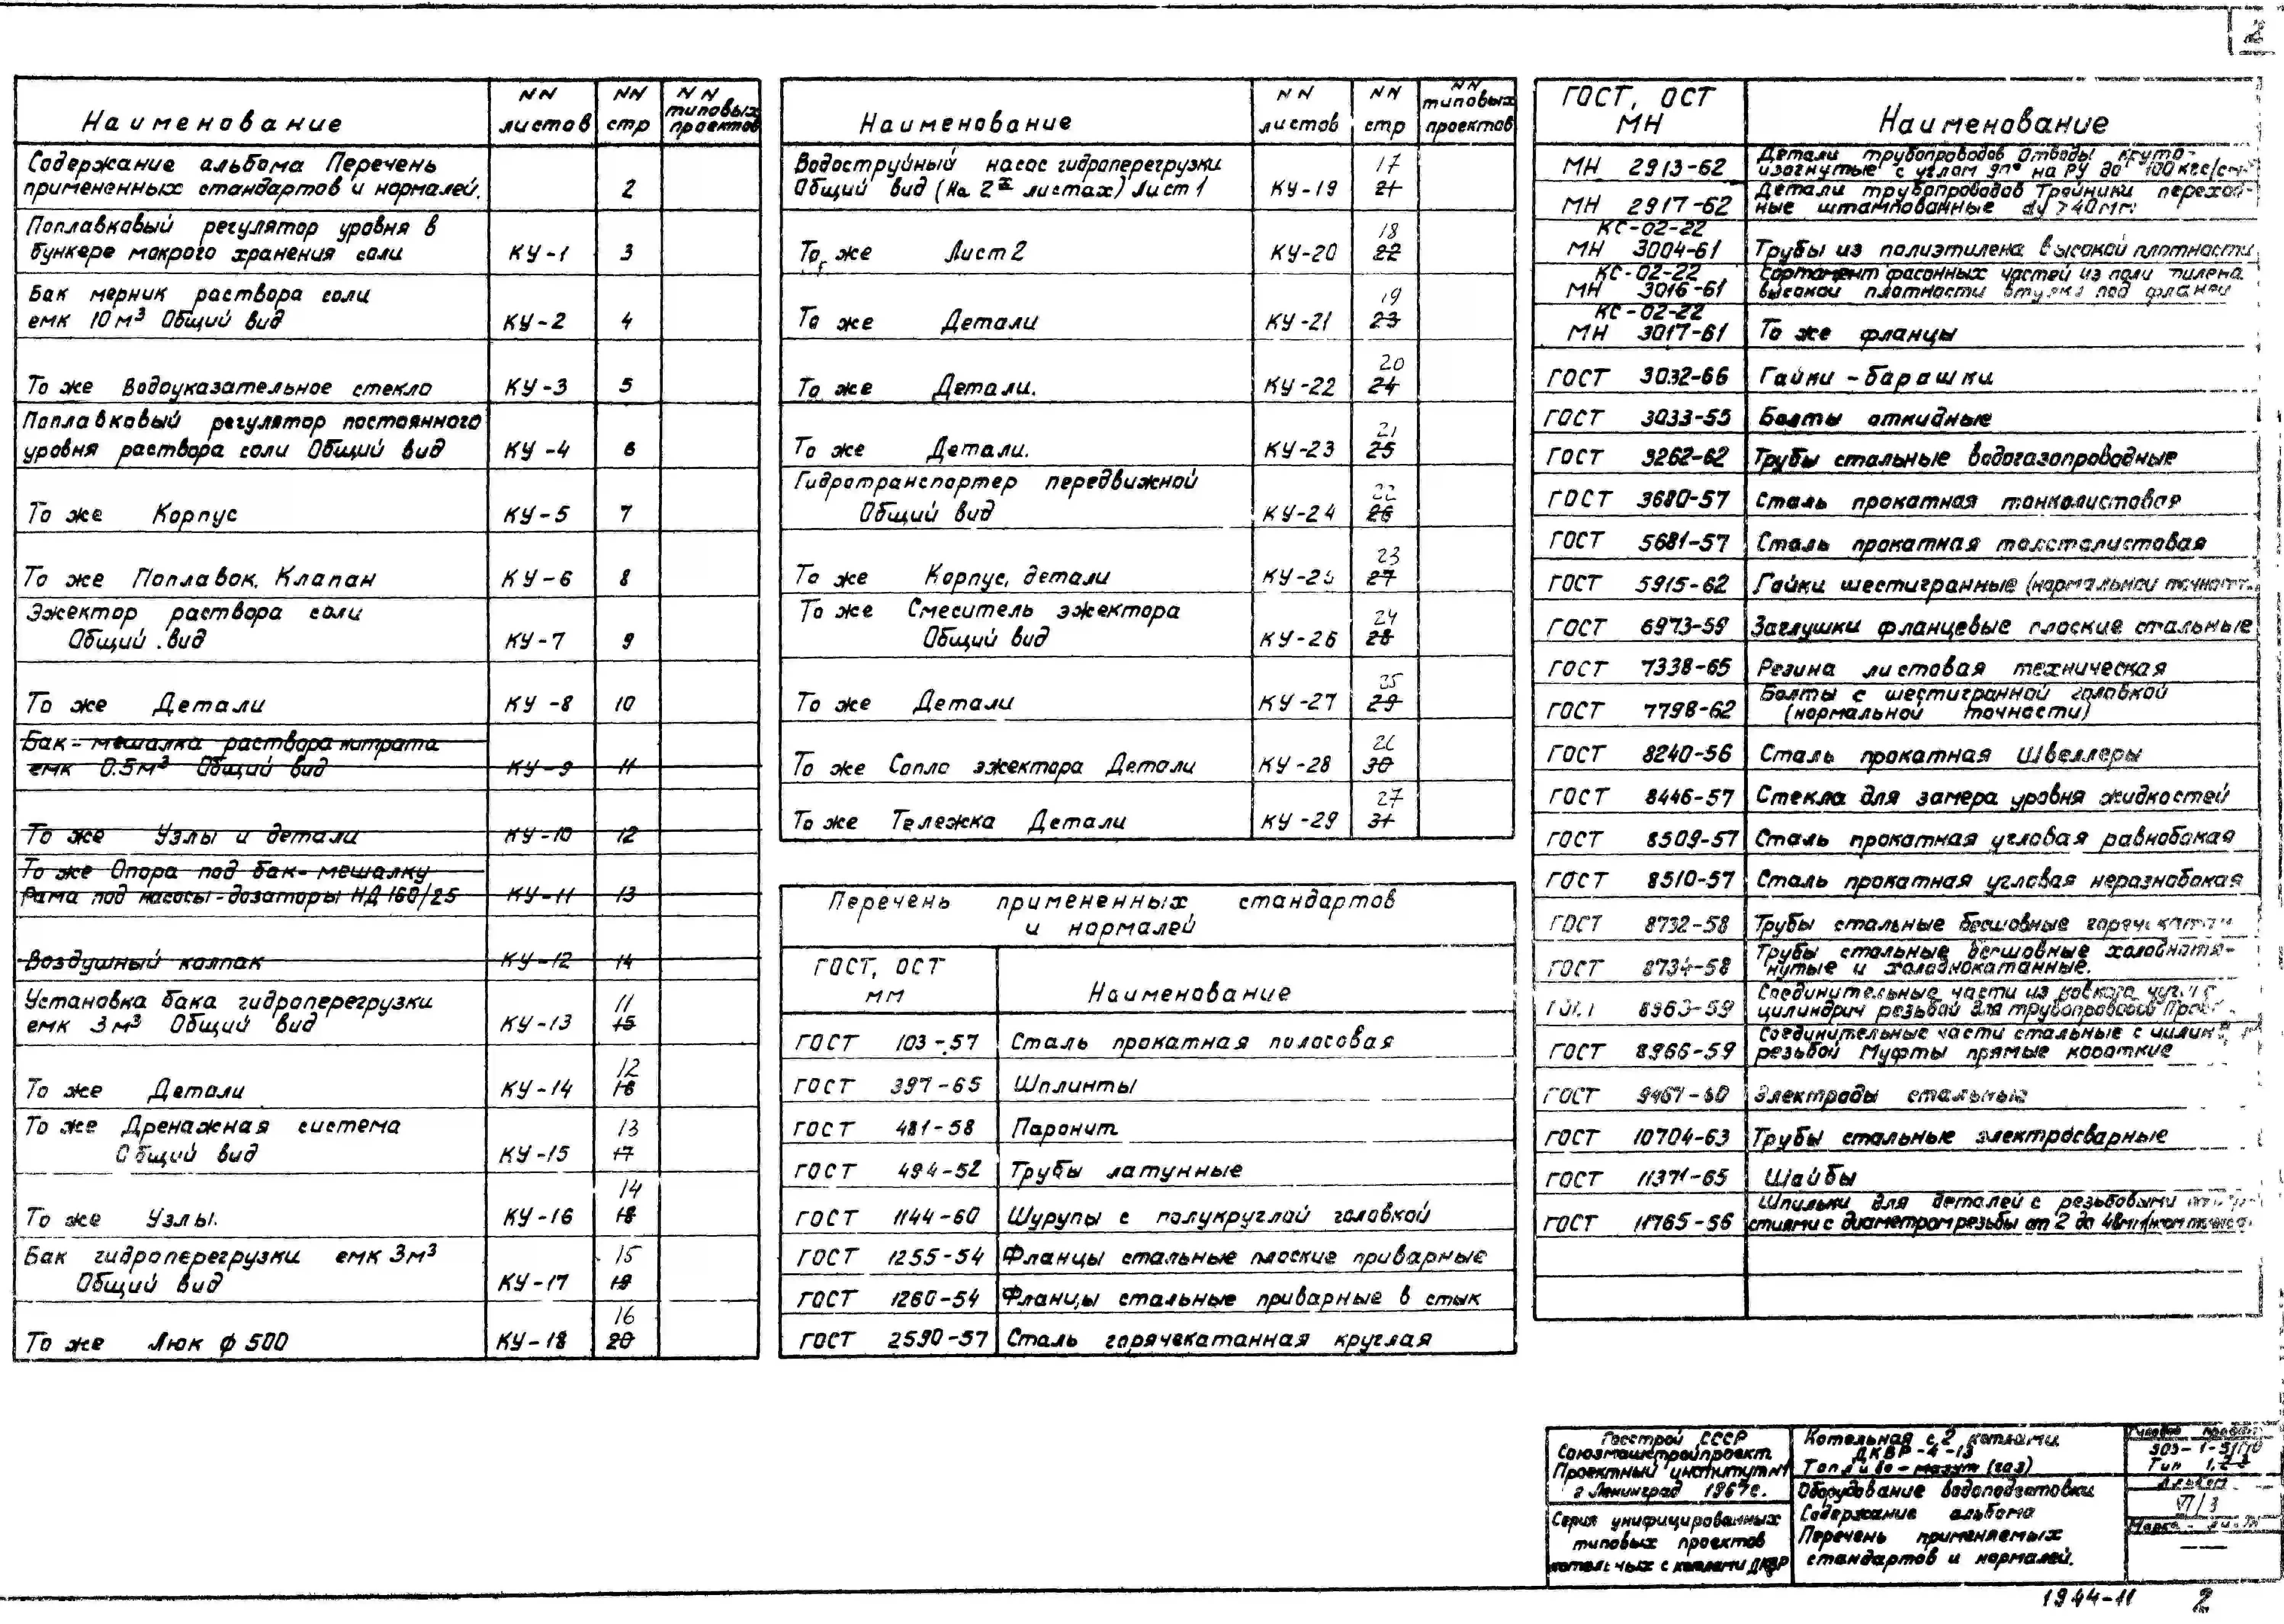 2
Наименование
NN листов
NN стр
NN типовых проектов
Содержание альбома Перечень
примененных стандартов и нормалей. 2
Поплавковый регулятор уровня в
бункере мокрого хранения соли КУ-1 3
Бак мерник раствора соли
емк 10 м³ Общий вид КУ-2 4
То же Водоуказательное стекло КУ-3 5
Поплавковый регулятор постоянного
уровня раствора соли Общий вид КУ-4 6
То же Корпус КУ-5 7
То же Поплавок. Клапан КУ-6 8
Эжектор раствора соли
Общий вид КУ-7 9
То же Детали КУ-8 10
Бак-мешалка раствора нитрата
емк 0.5м³ Общий вид КУ-9 11
То же Узлы и детали КУ-10 12
То же Опора под бак-мешалку
Рама под насосы-дозаторы НД 160/25 КУ-11 13
Воздушный колпак КУ-12 14
Установка бака гидроперегрузки 11
емк 3м³ Общий вид КУ-13 15
12
То же Детали КУ-14 16
То же Дренажная система 13
Общий вид КУ-15 17
14
То же Узлы. КУ-16 18
Бак гидроперегрузки емк 3м³ 15
Общий вид КУ-17 19
16
То же Люк ф 500 КУ-18 20
Наименование
NN листов
NN стр
NN типовых проектов
Водоструйный насос гидроперегрузки 17
Общий вид (На 2х листах) Лист 1 КУ-19 21
18
То же Лист 2 КУ-20 22
19
То же Детали КУ-21 23
20
То же Детали. КУ-22 24
21
То же Детали. КУ-23 25
Гидротранспортер передвижной 22
Общий вид КУ-24 26
23
То же Корпус, детали КУ-25 27
То же Смеситель эжектора 24
Общий вид КУ-26 28
25
То же Детали КУ-27 29
26
То же Сопло эжектора Детали КУ-28 30
27
То же Тележка Детали КУ-29 31
Перечень примененных стандартов
и нормалей
ГОСТ, ОСТ
мм
Наименование
ГОСТ 103-57 Сталь прокатная полосовая
ГОСТ 397-65 Шплинты
ГОСТ 481-58 Паронит
ГОСТ 494-52 Трубы латунные
ГОСТ 1144-60 Шурупы с полукруглой головкой
ГОСТ 1255-54 Фланцы стальные плоские приварные
ГОСТ 1260-54 Фланцы стальные приварные в стык
ГОСТ 2590-57 Сталь горячекатанная круглая
ГОСТ, ОСТ
МН
Наименование
Детали трубопроводов Отводы круто-
МН 2913-62 изогнутые с углом 90° на Ру до 100 кгс/см²
Детали трубопроводов Тройники переход-
МН 2917-62 ные штампованные dy > 40мм
КС-02-22
МН 3004-61 Трубы из полиэтилена высокой плотности
КС-02-22 Сортамент фасонных частей из
МН 3016-61 высокой плотности под
КС-02-22
МН 3017-61 То же фланцы
ГОСТ 3032-66 Гайки-барашки
ГОСТ 3033-55 Болты откидные
ГОСТ 3262-62 Трубы стальные водогазопроводные
ГОСТ 3680-57 Сталь прокатная тонколистовая
ГОСТ 5681-57 Сталь прокатная толстолистовая
ГОСТ 5915-62 Гайки шестигранные (нормальной
ГОСТ 6973-59 Заглушки фланцевые плоские стальные
ГОСТ 7338-65 Резина листовая техническая
Болты с шестигранной головкой
ГОСТ 7798-62 (нормальной точности)
ГОСТ 8240-56 Сталь прокатная Швеллеры
ГОСТ 8446-57 Стекла для замера уровня жидкостей
ГОСТ 8509-57 Сталь прокатная угловая равнобокая
ГОСТ 8510-57 Сталь прокатная угловая неравнобокая
ГОСТ 8732-58 Трубы стальные бесшовные
Трубы стальные бесшовные холоднотя-
ГОСТ 8734-58 нутые и холоднокатанные.
Соединительные части из ковкого
8963-59 цилиндрич резьбой для трубопроводов
Соединительные части стальные с
ГОСТ 8966-59 резьбой Муфты прямые короткие
ГОСТ 9467-60 Электроды стальные
ГОСТ 10704-63 Трубы стальные электросварные
ГОСТ 11371-65 Шайбы
Шпильки для деталей с резьбовыми
ГОСТ 11765-66 стиями с диаметром резьбы от 2 до 48мм
Госстрой СССР
Союзмашстройпроект
Проектный институт №1
г Ленинград 1967г.
Серия унифицированных
типовых проектов
котельных с котлами ДКВР
Котельная с 2 котлами
ДКВР-4-13
Топливо-мазут (газ)
Оборудование водоподготовки
Содержание альбома
Перечень применяемых
стандартов и нормалей.
Типовой проект
Тип
Альбом
VI/3
Марка-лист
1944-11 2